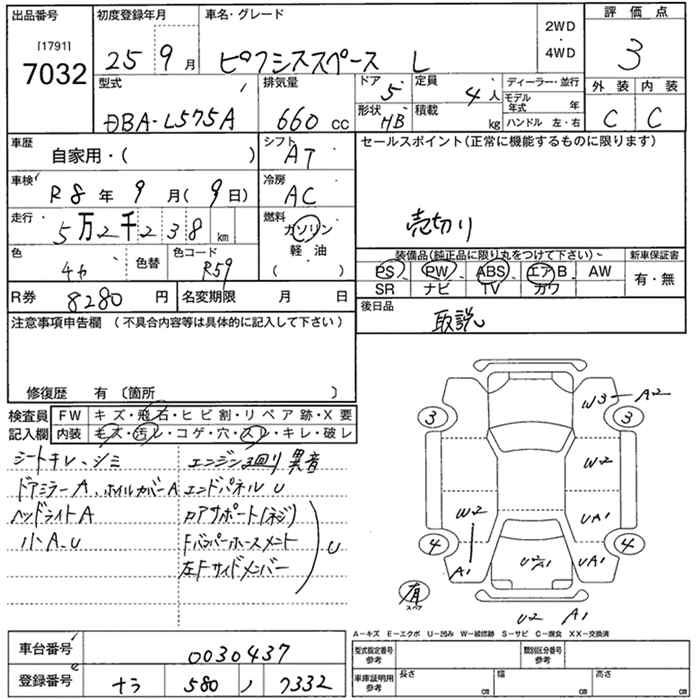 出品番号
[1791]
7032
初度登録年月
25 9月
車名・グレード
ピクシススペース L
2WD
・
4WD
評価点
3
型式
DBA-L575A
排気量
660 cc
ドア 5
定員 4人
形状 HB
積載 kg
ディーラー・並行
モデル年式 年
ハンドル 左・右
外装 内装
C C
車歴
自家用・( )
シフト
AT
セールスポイント(正常に機能するものに限ります)
売切り
車検
R8年 9月(9日)
冷房
AC
走行
5万2千238km
燃料
ガソリン
軽・油
( )
色
4カ
色替
色コード
R59
装備品(純正品に限り丸をつけて下さい)
PS PW ABS エアB AW
SR ナビ TV カワ
新車保証書
有・無
R券 8280円
名変期限 月 日
後日品
取説
注意事項申告欄(不具合内容等は具体的に記入して下さい)
修復歴 有〔箇所 〕
検査員
記入欄
FW キズ・飛石・ヒビ割・リペア跡・X要
内装 キズ・汚レ・コゲ・穴・スレ・キレ・破レ
シートキレ、シミ
ドアミラーA、ホイルカバーA
ヘッドライトA
小A、U
エンジン回り異音
エンドパネルU
コアサポート(ネジ)
Fバンパーホースメント
左Fサイドメンバー
U
3
W3 A2
3
W2
W2
UA1
4
A1
U2/A1
UA1
4
有
スペア
U2 A1
A-キズ E-エクボ U-凹み W-補修跡 S-サビ C-腐食 XX-交換済
車台番号
0030437
登録番号
ナラ 580 ノ 7332
型式指定番号
参考
類別区分番号
参考
車庫証明用
参考
長さ cm
幅 cm
高さ cm